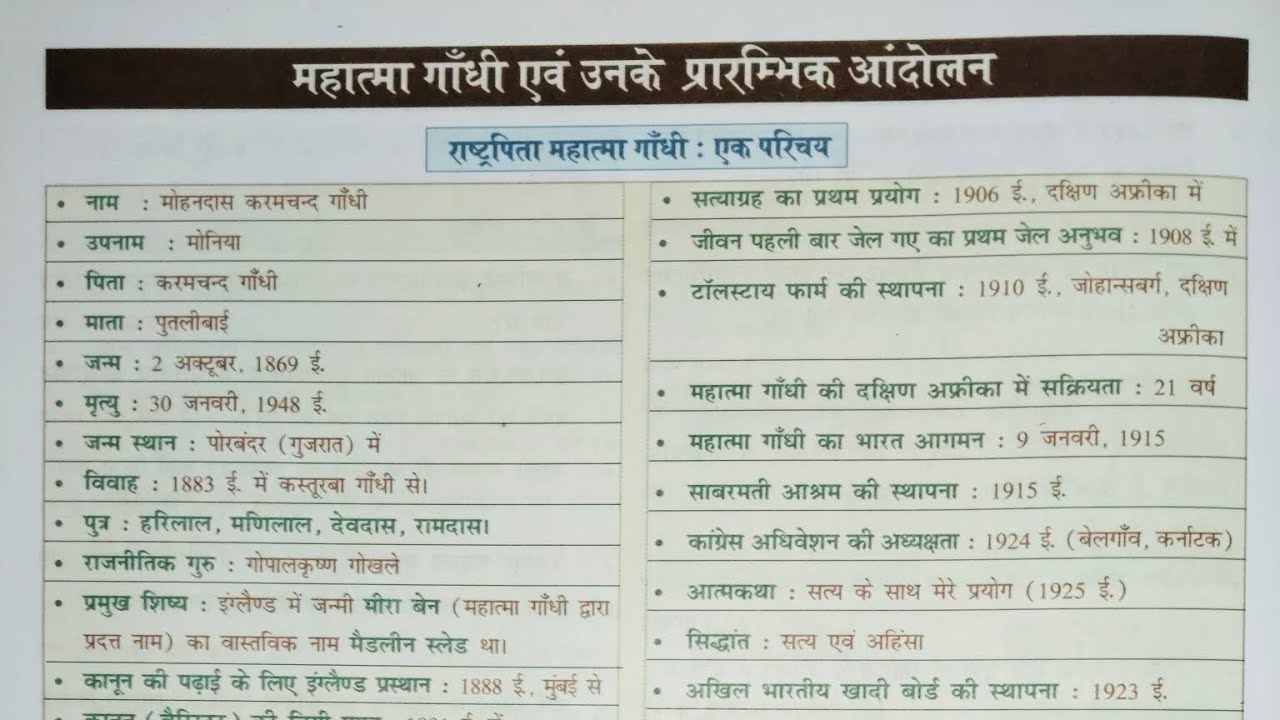 महात्मा गाँधी एवं उनके प्रारम्भिक आंदोलन
राष्ट्रपिता महात्मा गाँधी : एक परिचय
• नाम : मोहनदास करमचन्द गाँधी
• उपनाम : मोनिया
• पिता : करमचन्द गाँधी
• माता : पुतलीबाई
• जन्म : 2 अक्टूबर, 1869 ई.
• मृत्यु : 30 जनवरी, 1948 ई.
• जन्म स्थान : पोरबंदर (गुजरात) में
• विवाह : 1883 ई. में कस्तूरबा गाँधी से।
• पुत्र : हरिलाल, मणिलाल, देवदास, रामदास।
• राजनीतिक गुरु : गोपालकृष्ण गोखले
• प्रमुख शिष्य : इंग्लैण्ड में जन्मी मीरा बेन (महात्मा गाँधी द्वारा
प्रदत्त नाम) का वास्तविक नाम मैडलीन स्लेड था।
• कानून की पढ़ाई के लिए इंग्लैण्ड प्रस्थान : 1888 ई., मुंबई से
• सत्याग्रह का प्रथम प्रयोग : 1906 ई., दक्षिण अफ्रीका में
• जीवन पहली बार जेल गए का प्रथम जेल अनुभव : 1908 ई. में
• टॉलस्टाय फार्म की स्थापना : 1910 ई., जोहान्सबर्ग, दक्षिण
अफ्रीका
• महात्मा गाँधी की दक्षिण अफ्रीका में सक्रियता : 21 वर्ष
• महात्मा गाँधी का भारत आगमन : 9 जनवरी, 1915
• साबरमती आश्रम की स्थापना : 1915 ई.
• कांग्रेस अधिवेशन की अध्यक्षता : 1924 ई. (बेलगाँव, कर्नाटक)
• आत्मकथा : सत्य के साथ मेरे प्रयोग (1925 ई.)
• सिद्धांत : सत्य एवं अहिंसा
• अखिल भारतीय खादी बोर्ड की स्थापना : 1923 ई.